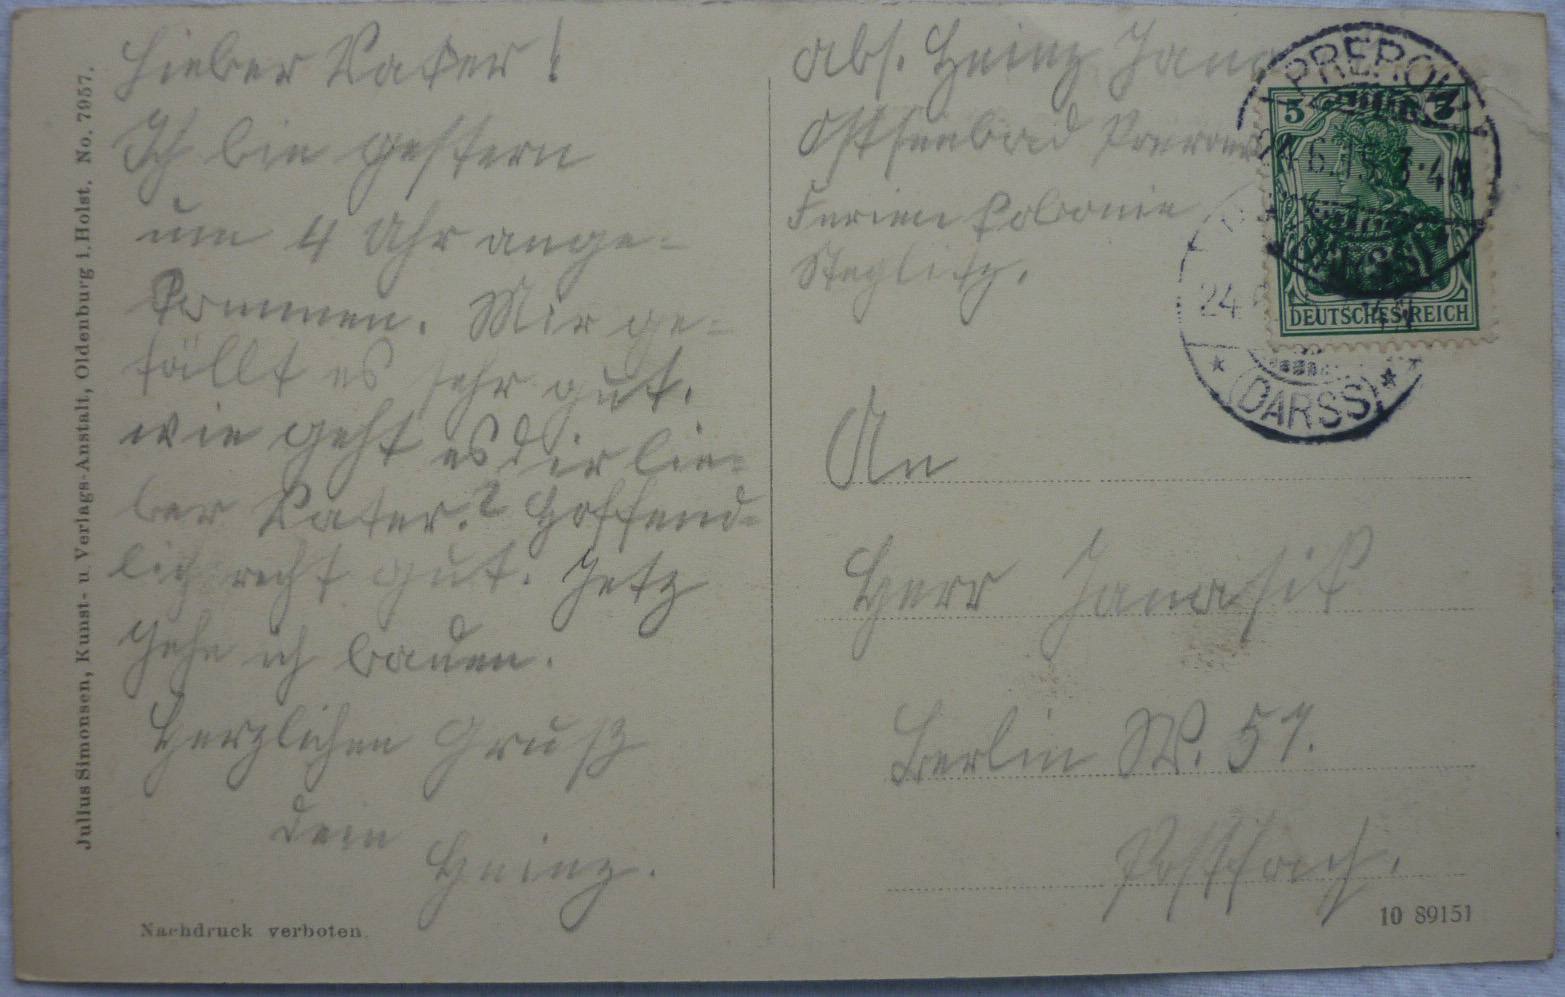 Lieber Vater!
Ich bin gestern
um 4 Uhr ange-
kommen. Mir ge-
fällt es sehr gut.
wie geht es dir lie-
ber Vater.? Hoffend-
lich recht gut. Jetz
gehe ich bauen.
Herzlichen Gruß
dein
Heinz.
Nachdruck verboten.
Julius Simonsen, Kunst- u. Verlags-Anstalt, Oldenburg i. Holst. No. 7957.
Abs. Heinz
Ostseebad Prerow
Ferien Kolonie
Steglitz.
PREROW
24.6.15.3-4N.
(DARSS)
5 5
DEUTSCHES REICH
24.
* (DARSS) *
An
Herr Janasik
Berlin W. 57.
Postfach.
10 89151